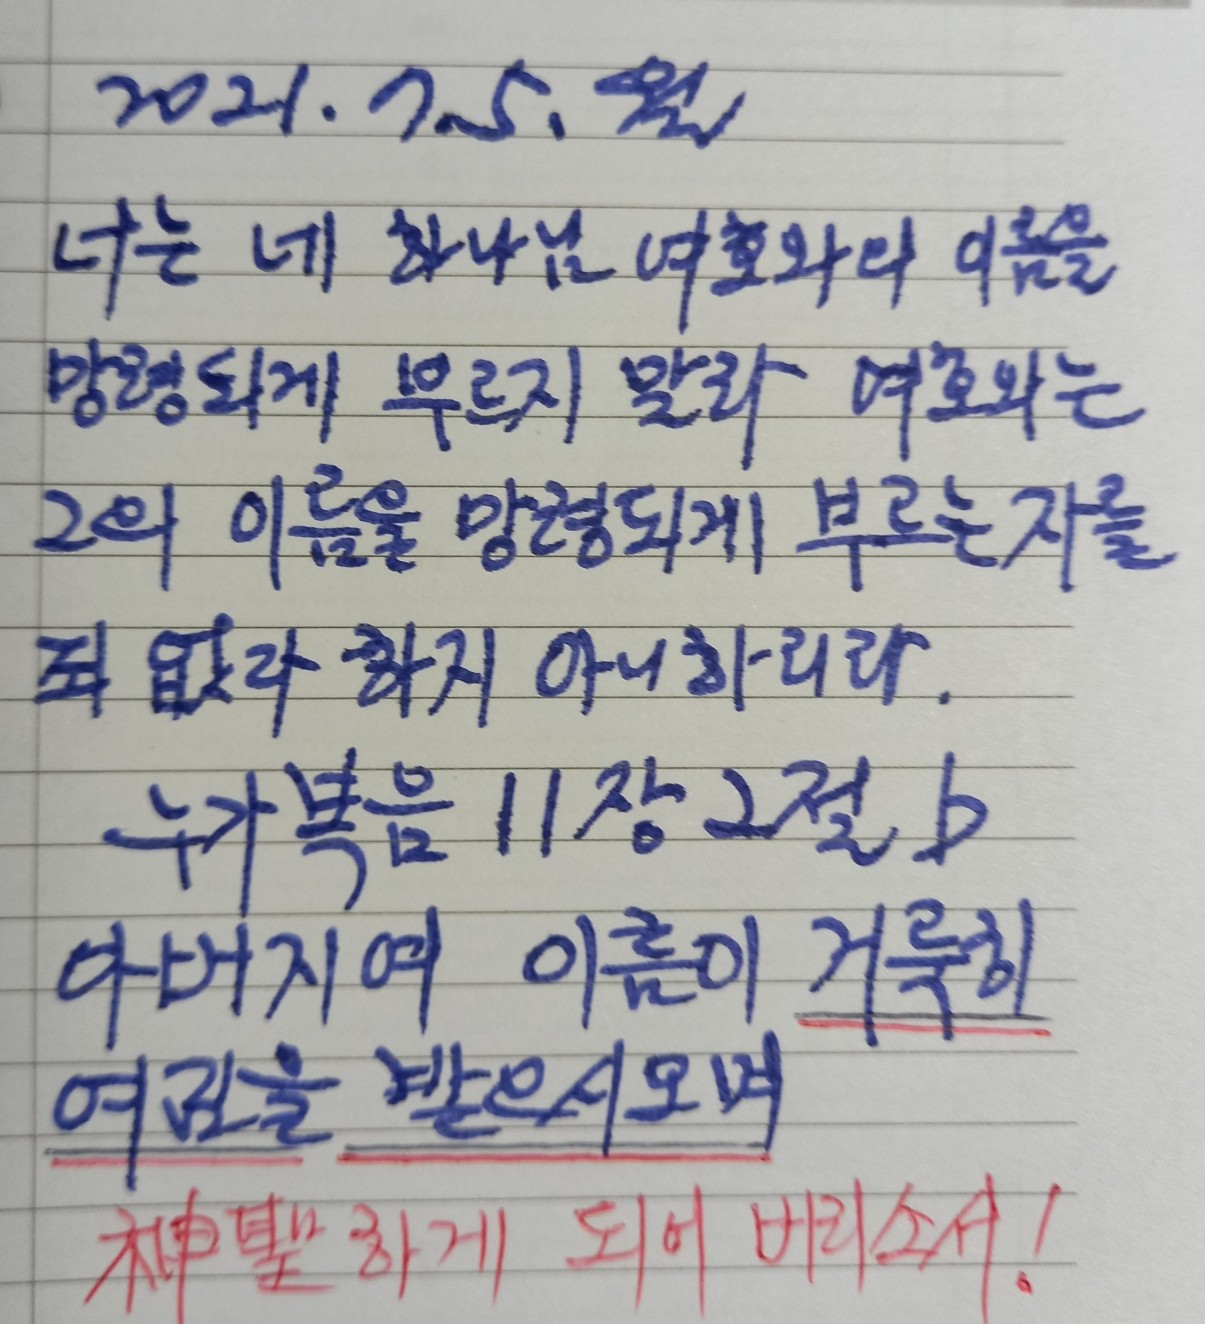 2021. 7. 5. 월
너는 네 하나님 여호와의 이름을
망령되게 부르지 말라 여호와는
그의 이름을 망령되게 부르는 자를
죄 없다 하지 아니하리라.
누가복음 11장 2절 b
아버지여 이름이 거룩히
여김을 받으시오며
神聖하게 되어 버리소서!